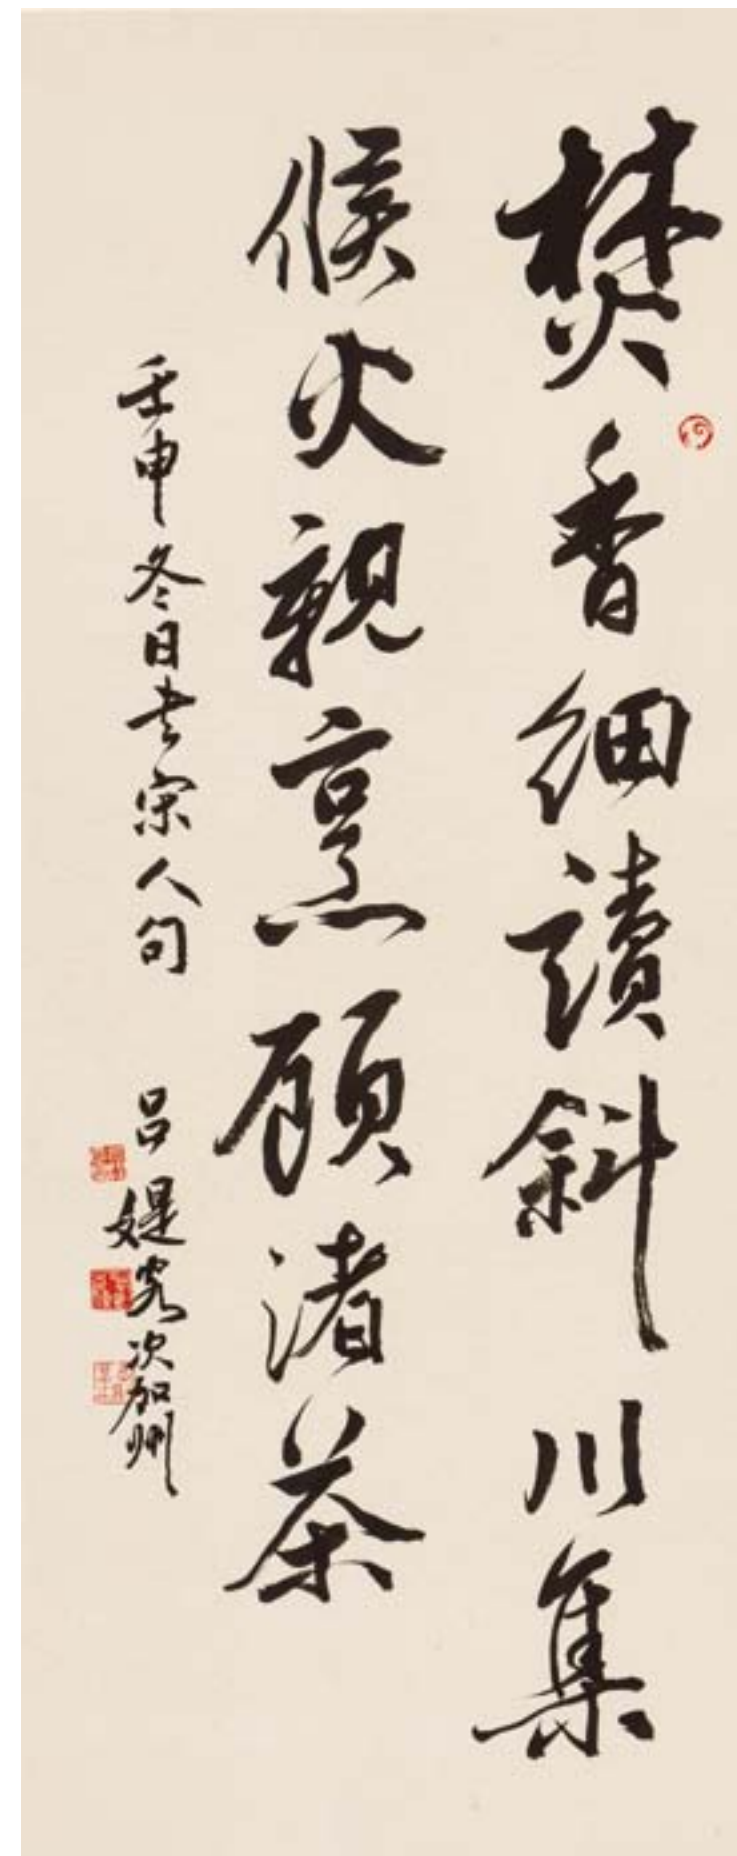 焚香細讀斜川集
候火親烹顧渚茶
壬申冬日書宋人句 吕媞客次加州